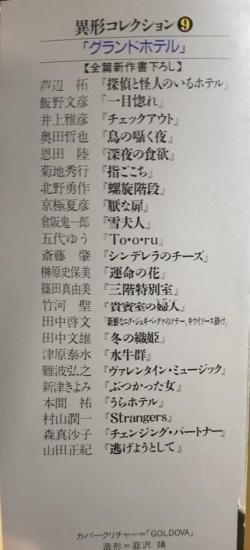 異形コレクション❾
「グランドホテル」
【全篇新作書下ろし】
芦辺 拓『探偵と怪人のいるホテル』
飯野文彦『一目惚れ』
井上雅彦『チェックアウト』
奥田哲也『鳥の囁く夜』
恩田 陸『深夜の食欲』
菊地秀行『指ごこち』
北野勇作『螺旋階段』
京極夏彦『厭な扉』
倉阪鬼一郎『雪夫人』
五代ゆう『To・o・ru』
斎藤 肇『シンデレラのチーズ』
榊原史保美『運命の花』
篠田真由美『三階特別室』
竹河 聖『貴賓室の婦人』
田中啓文『新鮮なニグ・ジュギペ・グァのソテー、キウイソース掛け』
田中文雄『冬の織姫』
津原泰水『水牛群』
難波弘之『ヴァレンタイン・ミュージック』
新津きよみ『ぶつかった女』
本間 祐『うらホテル』
村山潤一『Strangers』
森真沙子『チェンジング・パートナー』
山田正紀『逃げようとして』
カバークリチャー=「GOLDOVA」
造形=韮沢 靖